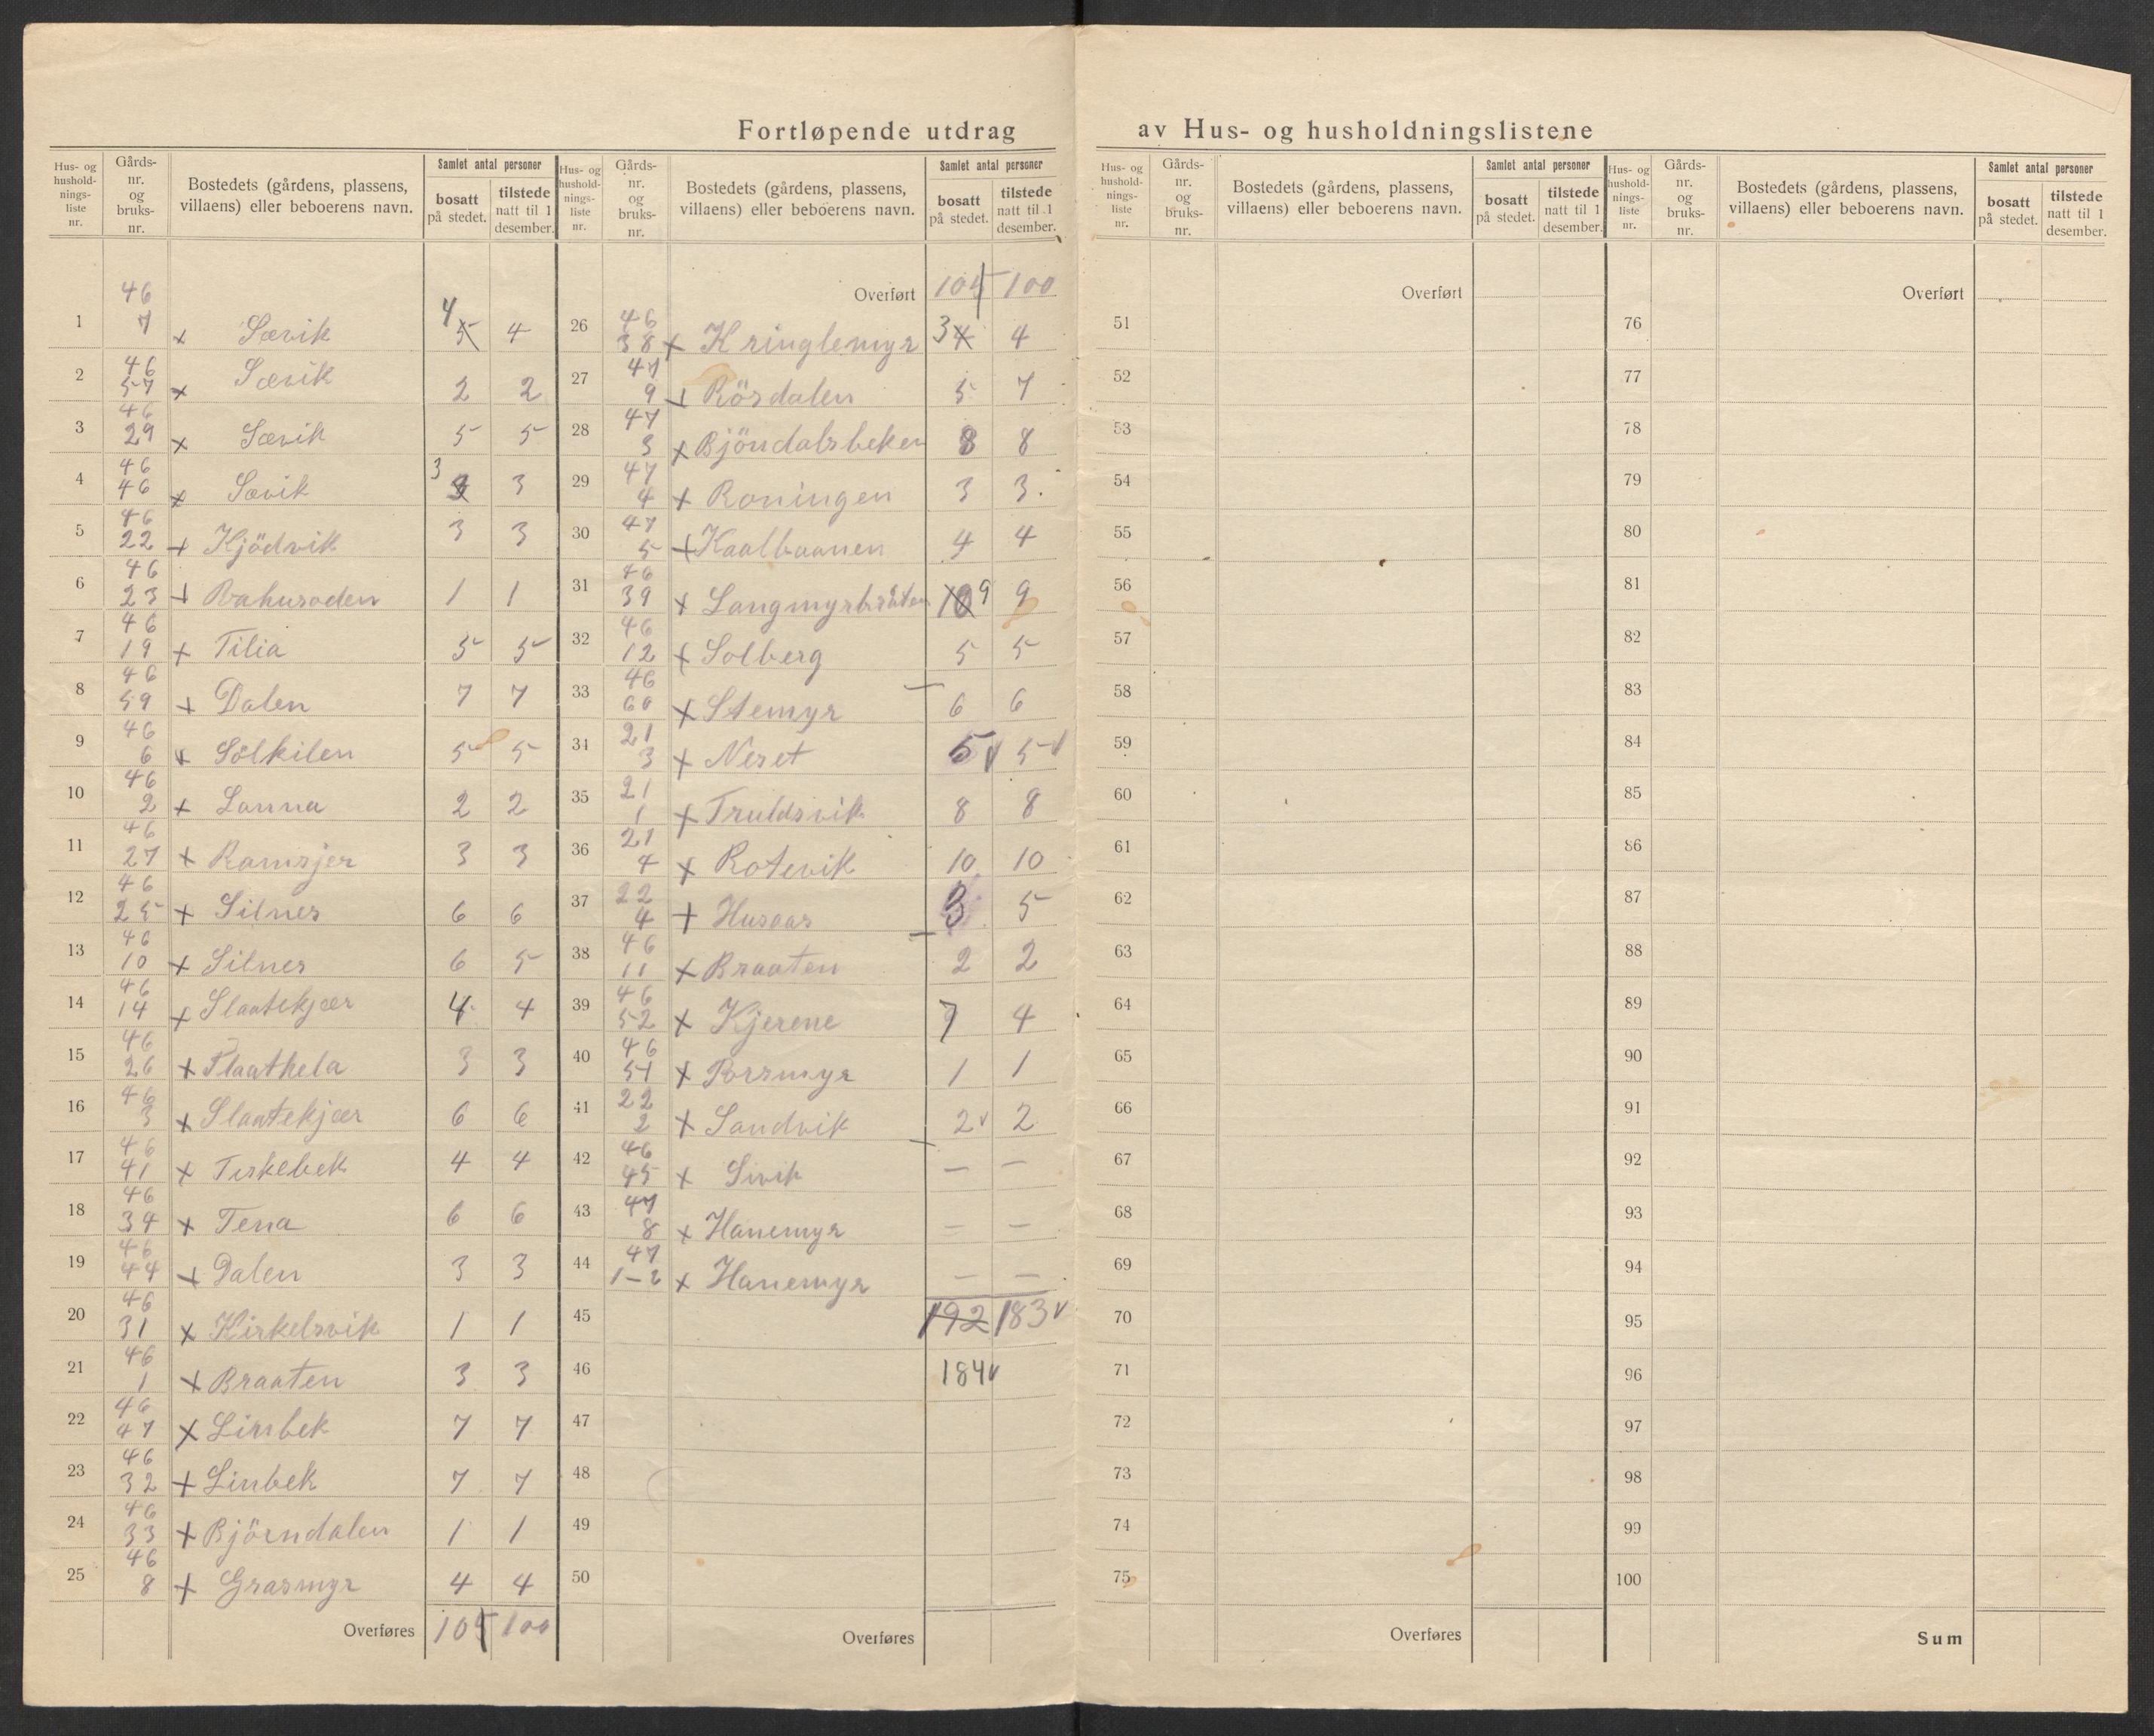 Fortløpende utdrag av Hus- og husholdningslistene
Hus- og hushold- nings- liste nr. | Gårds- nr. og bruks- nr. | Bostedets (gårdens, plassens, villaens) eller beboerens navn. | Samlet antal personer | bosatt på stedet. | tilstede natt til 1 desember.
1 46 7 x Sævik 4 5 4
2 46 57 x Sævik 2 2
3 46 29 x Sævik 5 5
4 46 46 x Sævik 3 3
5 46 22 x Kjödvik 3 3
6 46 23 x 1 1
7 46 19 x Tilia 5 5
8 46 59 x Dalen 7 7
9 46 6 x Sölkilen 5 5
10 46 2 x Lanna 2 2
11 46 27 x Ramsjer 3 3
12 46 25 x Silnes 6 6
13 46 10 x Silnes 6 5
14 46 14 x Slaatekjær 4 4
15 46 26 x Slaathela 3 3
16 46 3 x Slaatekjær 6 6
17 46 41 x Teskebek 4 4
18 46 34 x Tena 6 6
19 46 44 x Dalen 3 3
20 46 31 x Kirkelsvik 1 1
21 46 1 x Braaten 3 3
22 46 47 x Linbek 7 7
23 46 32 x Linbek 7 7
24 46 33 x Björndalen 1 1
25 46 8 x Grasmyr 4 4
Overføres 104 100
Hus- og hushold- nings- liste nr. | Gårds- nr. og bruks- nr. | Bostedets (gårdens, plassens, villaens) eller beboerens navn. | Samlet antal personer | bosatt på stedet. | tilstede natt til 1 desember.
Overført 104 100
26 46 38 x Kringlemyr 3 4 4
27 47 9 x Rösdalen 5 7
28 47 3 x Bjöndalsbeken 8 8
29 47 4 x Roningen 3 3.
30 47 5 x Kaalbaanen 4 4
31 46 39 x Langmyrbråten 10 9 9
32 46 12 x Solberg 5 5
33 46 60 x Stemyr 6 6
34 21 3 x Neset 5 v 5 v
35 21 1 x Truldsvik 8 8
36 21 4 x Rotevik 10 10
37 22 4 x Husaas 3 5
38 46 11 x Braaten 2 2
39 46 52 x Kjerene 7 4
40 46 51 x Porsmyr 1 1
41 22 2 x Sandvik 2 v 2
42 46 45 x Sivik – –
43 47 8 x Hanemyr – –
44 47 1-2 x Hanemyr – –
45 192 183 v
46 184 v
47
48
49
50
Overføres
Hus- og hushold- nings- liste nr. | Gårds- nr. og bruks- nr. | Bostedets (gårdens, plassens, villaens) eller beboerens navn. | Samlet antal personer | bosatt på stedet. | tilstede natt til 1 desember.
Overført
51
52
53
54
55
56
57
58
59
60
61
62
63
64
65
66
67
68
69
70
71
72
73
74
75
Overføres
Hus- og hushold- nings- liste nr. | Gårds- nr. og bruks- nr. | Bostedets (gårdens, plassens, villaens) eller beboerens navn. | Samlet antal personer | bosatt på stedet. | tilstede natt til 1 desember.
Overført
76
77
78
79
80
81
82
83
84
85
86
87
88
89
90
91
92
93
94
95
96
97
98
99
100
Sum